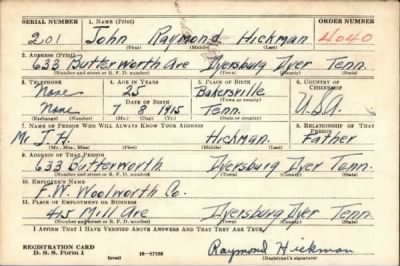 SERIAL NUMBER 1. NAME (Print) ORDER NUMBER
201 John Raymond Hickman 4040
(First) (Middle) (Last)
2. ADDRESS (Print)
633 Butterworth Ave Dyersburg Dyer Tenn.
(Number and street or R. F. D. number) (Town) (County) (State)
3. TELEPHONE 4. AGE IN YEARS 5. PLACE OF BIRTH 6. COUNTRY OF CITIZENSHIP
None 25 Bakersville
DATE OF BIRTH (Town or county)
None 7 8 1915 Tenn. U.S.A.
(Exchange) (Number) (Mo.) (Day) (Yr.) (State or country)
7. NAME OF PERSON WHO WILL ALWAYS KNOW YOUR ADDRESS 8. RELATIONSHIP OF THAT PERSON
Mr. Hickman. Father
(Mr., Mrs., Miss) (First) (Middle) (Last)
9. ADDRESS OF THAT PERSON
633 Butterworth. Dyersburg Dyer Tenn.
(Number and street or R. F. D. number) (Town) (County) (State)
10. EMPLOYER'S NAME
F.W. Woolworth Co.
11. PLACE OF EMPLOYMENT OR BUSINESS
415 Mill Ave Dyersburg Dyer Tenn.
(Number and street or R. F. D. number) (Town) (County) (State)
I AFFIRM THAT I HAVE VERIFIED ABOVE ANSWERS AND THAT THEY ARE TRUE.
REGISTRATION CARD
D. S. S. Form 1 (over) Raymond Hickman
(Registrant's signature)